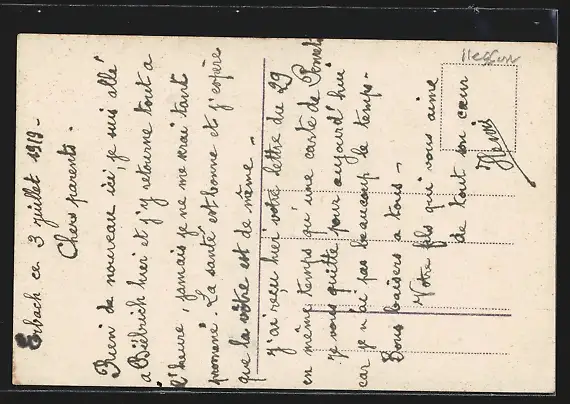 Erbach ce 3 juillet 1919 -
Chers parents.
Rien de nouveau ici, je suis allé
a Biebrich hier et j'y retourne tout a
l'heure, jamais je ne me vrai tant
promené. La santé est bonne et j'espère
que la vôtre est de même.
J'ai reçu hier votre lettre du 29
en même temps qu'une carte de
Je vous quitte pour aujourd'hui
car je n'ai pas beaucoup le temps.
Bons baisers a tous.
Votre fils qui vous aime
de tout son cœur
Henri